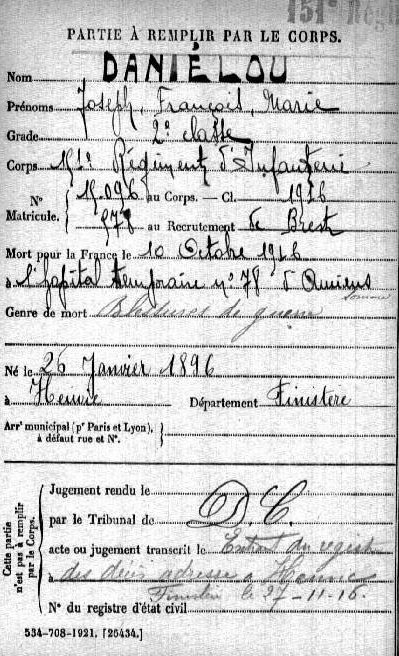 151e Régi
PARTIE À REMPLIR PAR LE CORPS.
Nom DANIÉLOU
Prénoms Joseph, François, Marie
Grade 2e classe
Corps 151e Régiment d'Infanterie
N° Matricule. { 15.096 au Corps. — Cl. 1916
978 au Recrutement de Brest
Mort pour la France le 10 Octobre 1916
à l'hôpital temporaire n° 78 d'Amiens
Somme
Genre de mort Blessures de guerre
Né le 26 Janvier 1896
à Henvic Département Finistère
Arrt municipal (pr Paris et Lyon),
à défaut rue et N°.
Cette partie n'est pas à remplir par le Corps.
Jugement rendu le
par le Tribunal de D.C.
acte ou jugement transcrit le Extrait du regist
à des décès adressé à Henvic
Finistère le 27-11-16.
N° du registre d'état civil
534-708-1921. [26434.]